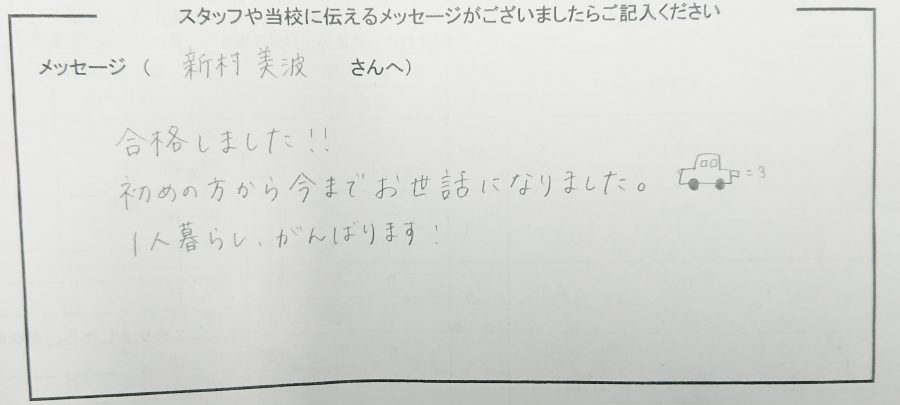 スタッフや当校に伝えるメッセージがございましたらご記入ください
メッセージ ( 新村 美波 さんへ)
合格しました!!
初めの方から今までお世話になりました。
1人暮らし、がんばります!